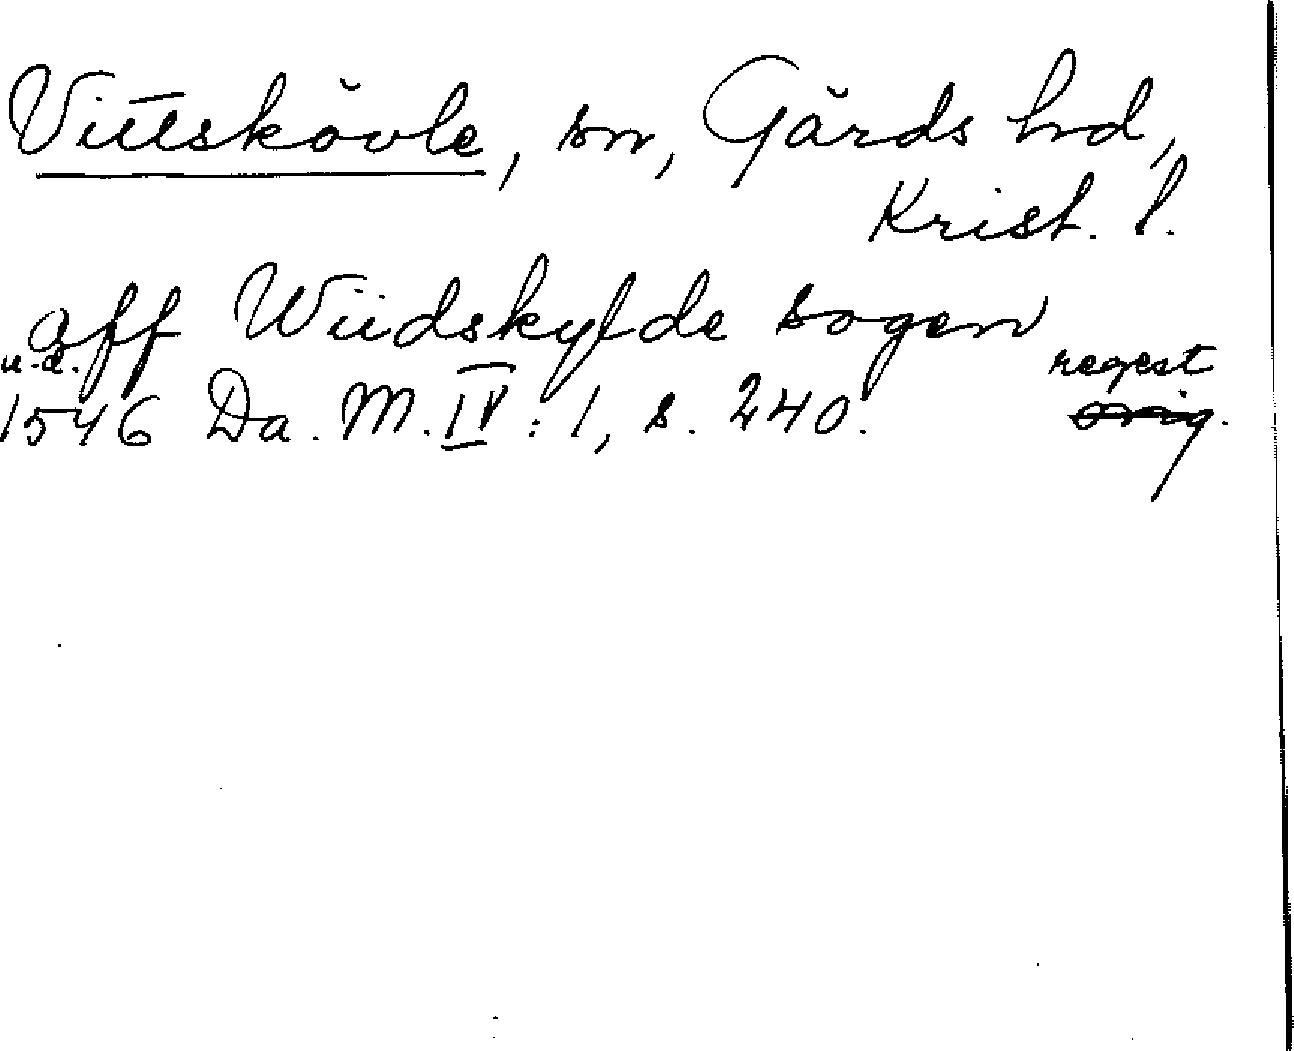 Vittskövle, sn, Gärds hd,
Krist. l.
aff Wiidskyfde sogen
u.d. regest
1546 Da. M. IV : 1, s. 240. orig.